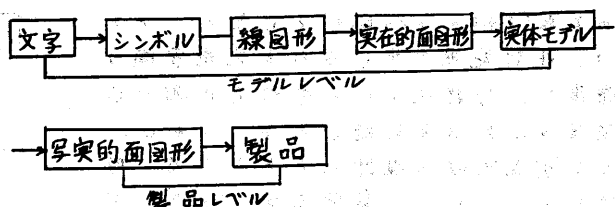 文字 シンボル 線図形 実在的面図形 実体モデル
モデルレベル
写実的面図形 製品
製品レベル